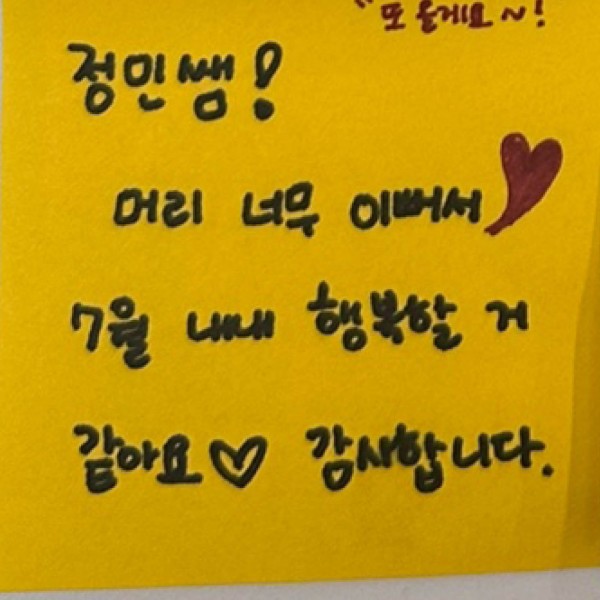 "또 올게요~!
정민쌤!
머리 너무 이뻐서
7월 내내 행복할 거
같아요♡ 감사합니다.